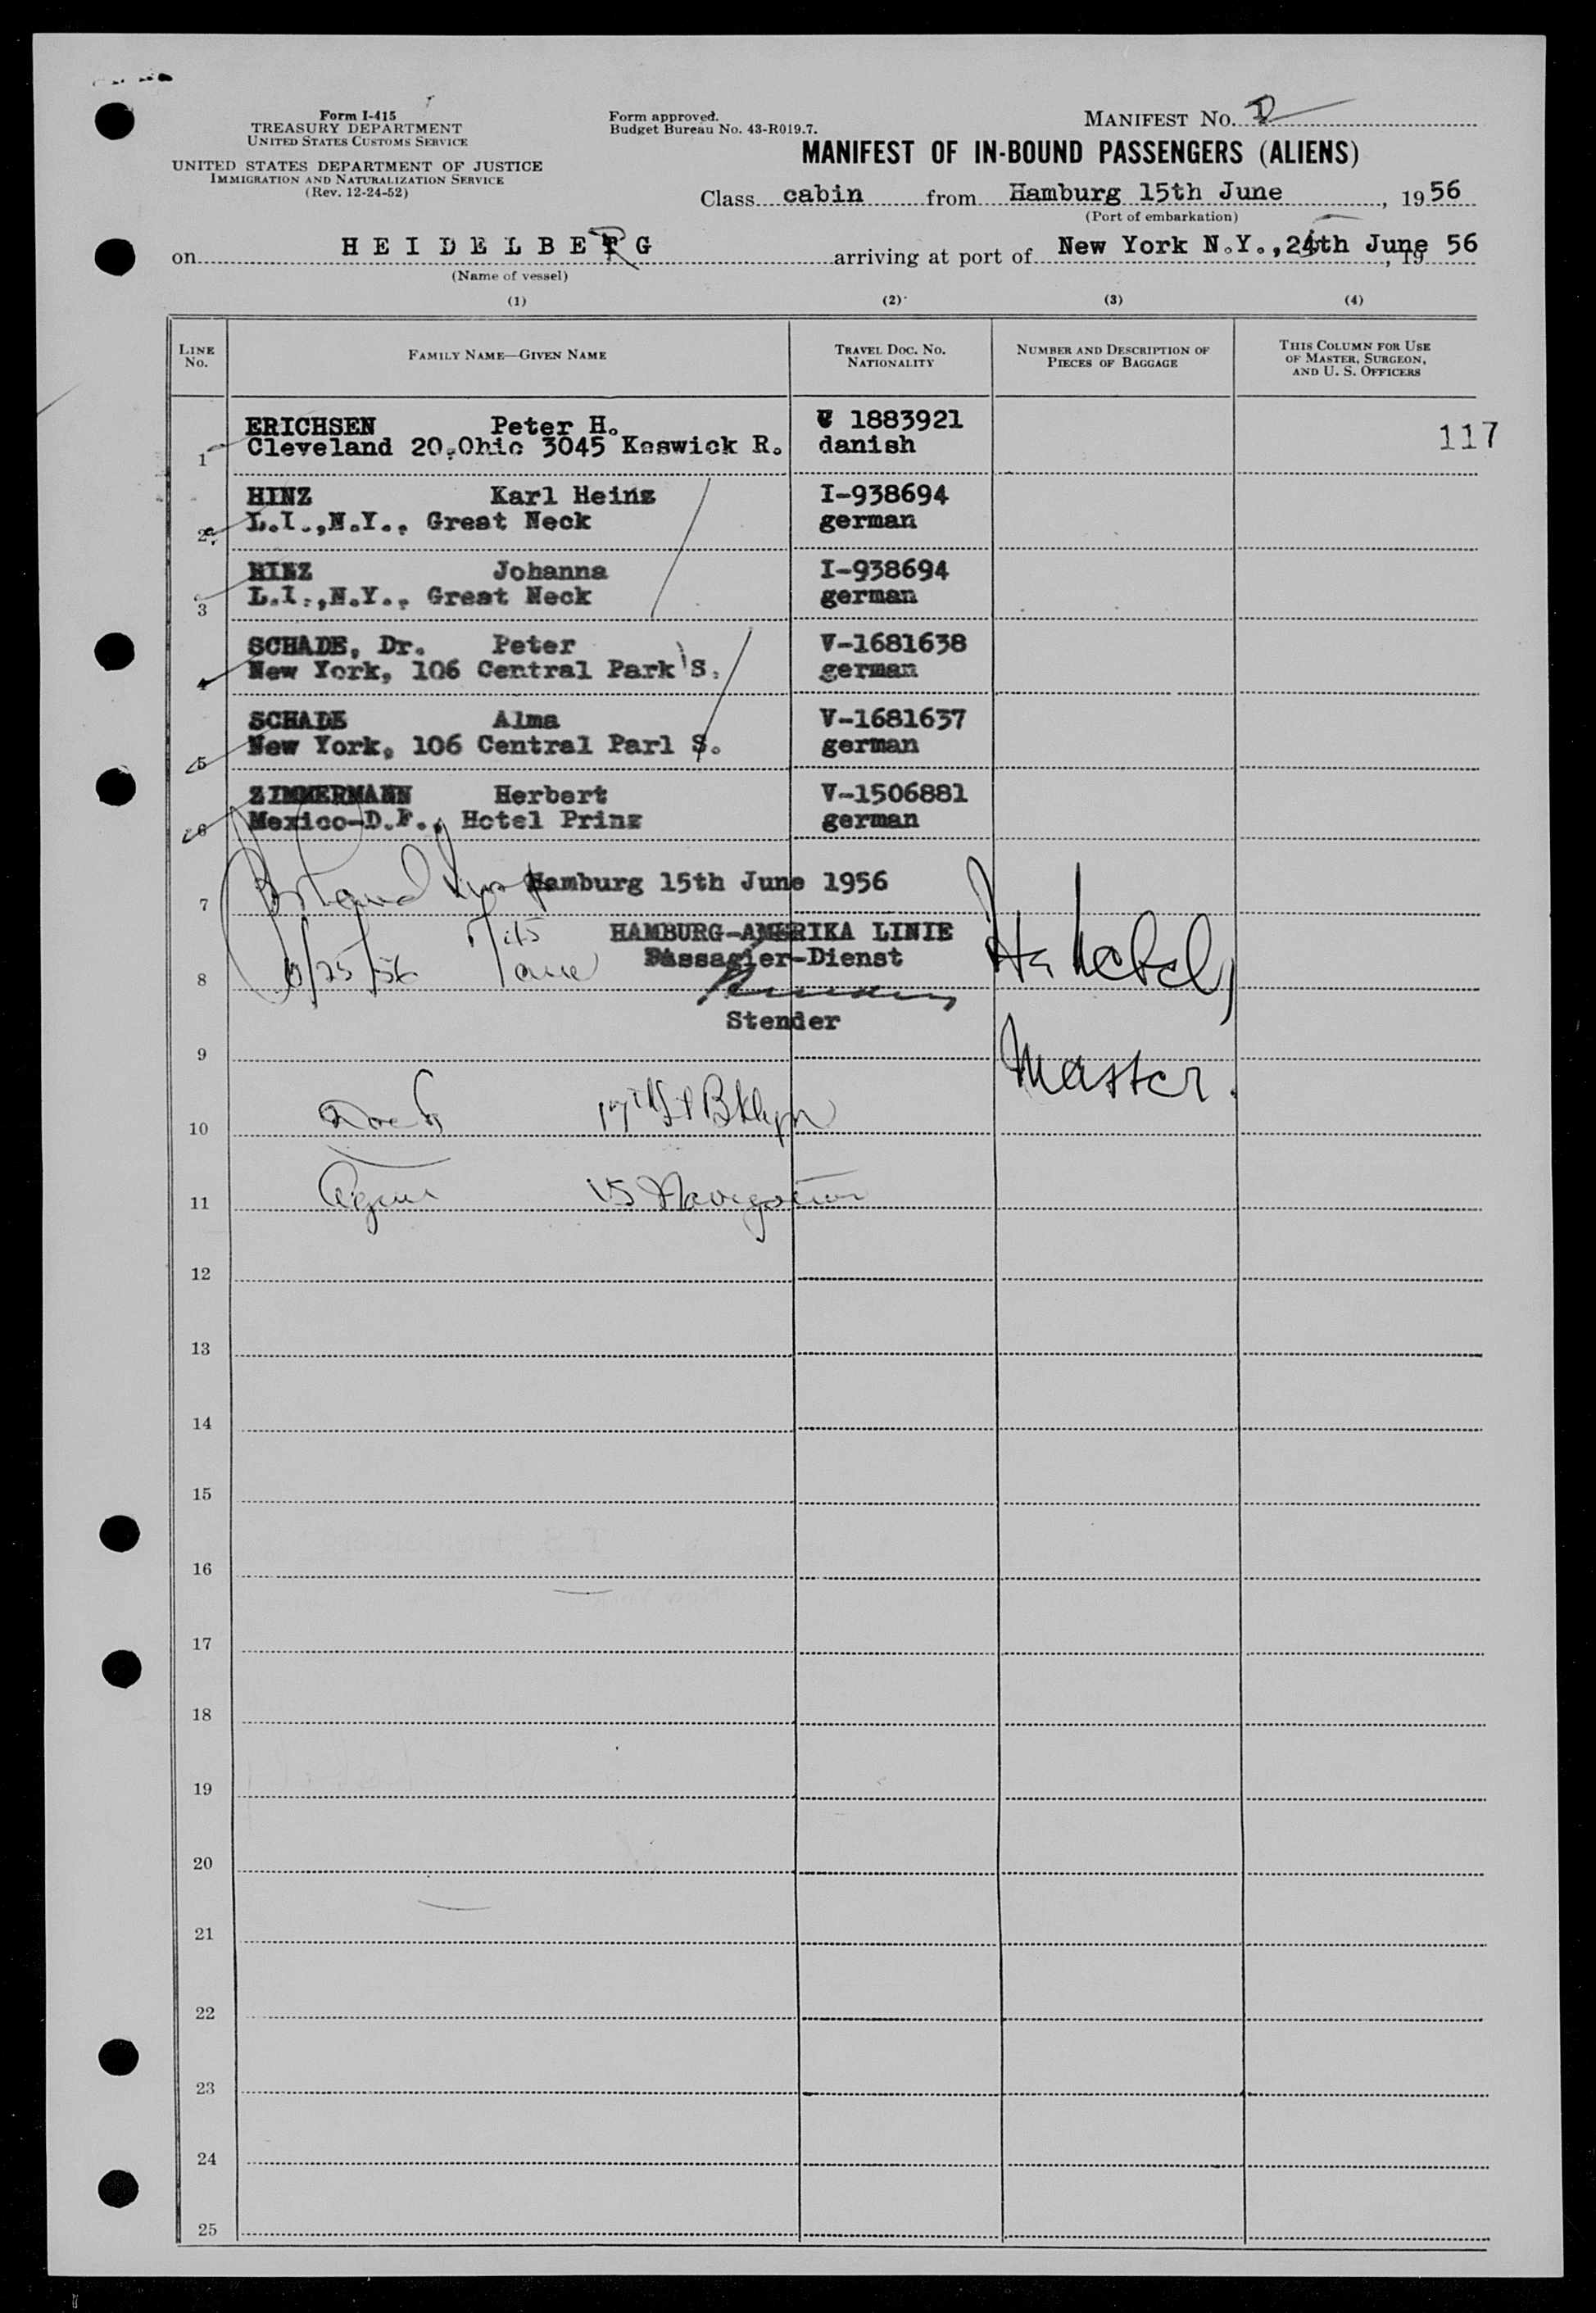 Form I-415
TREASURY DEPARTMENT
UNITED STATES CUSTOMS SERVICE
UNITED STATES DEPARTMENT OF JUSTICE
IMMIGRATION AND NATURALIZATION SERVICE
(Rev. 12-24-52)
Form approved.
Budget Bureau No. 43-R019.7.
MANIFEST NO.
MANIFEST OF IN-BOUND PASSENGERS (ALIENS)
Class cabin from Hamburg 15th June, 1956
(Port of embarkation)
on HEIDELBERG arriving at port of New York N.Y., 25th June, 19 56
(Name of vessel)
(1) (2) (3) (4)
LINE No. FAMILY NAME—GIVEN NAME TRAVEL DOC. NO. NATIONALITY NUMBER AND DESCRIPTION OF PIECES OF BAGGAGE THIS COLUMN FOR USE OF MASTER, SURGEON, AND U. S. OFFICERS
ERICHSEN Peter H. V 1883921
1 Cleveland 20.Ohio 3045 Keswick R. danish
117
HINZ Karl Heinz I-938694
2 L.I.,N.Y., Great Neck german
HINZ Johanna I-938694
3 L.I.,N.Y., Great Neck german
SCHADE, Dr. Peter V-1681638
4 New York, 106 Central Park S. german
SCHADE Alma V-1681637
5 New York, 106 Central Parl S. german
ZIMMERMANN Herbert V-1506881
6 Mexico-D.F., Hotel Prinz german
7 Hamburg 15th June 1956
HAMBURG-AMERIKA LINIE
Passagier-Dienst
8 6/25/56
Stender
9 Master.
10 Dock 17th St Bklyn
11 Agent US Navigation
12
13
14
15
16
17
18
19
20
21
22
23
24
25